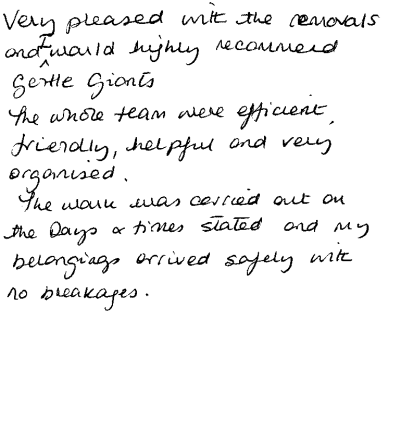 Very pleased with the removals
and I would highly recommend
Gentle Giants
The whole team were efficient,
friendly, helpful and very
organised.
The work was carried out on
the Days & times stated and my
belongings arrived safely with
no breakages.